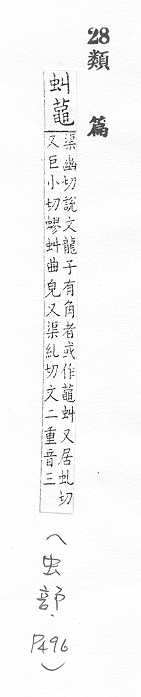 28類篇
虯蘢
渠幽切說文龍子有角者或作蘢虯又居虬切
又巨小切蟉虯曲皃又渠糺切文二重音三
(虫部.P.496)